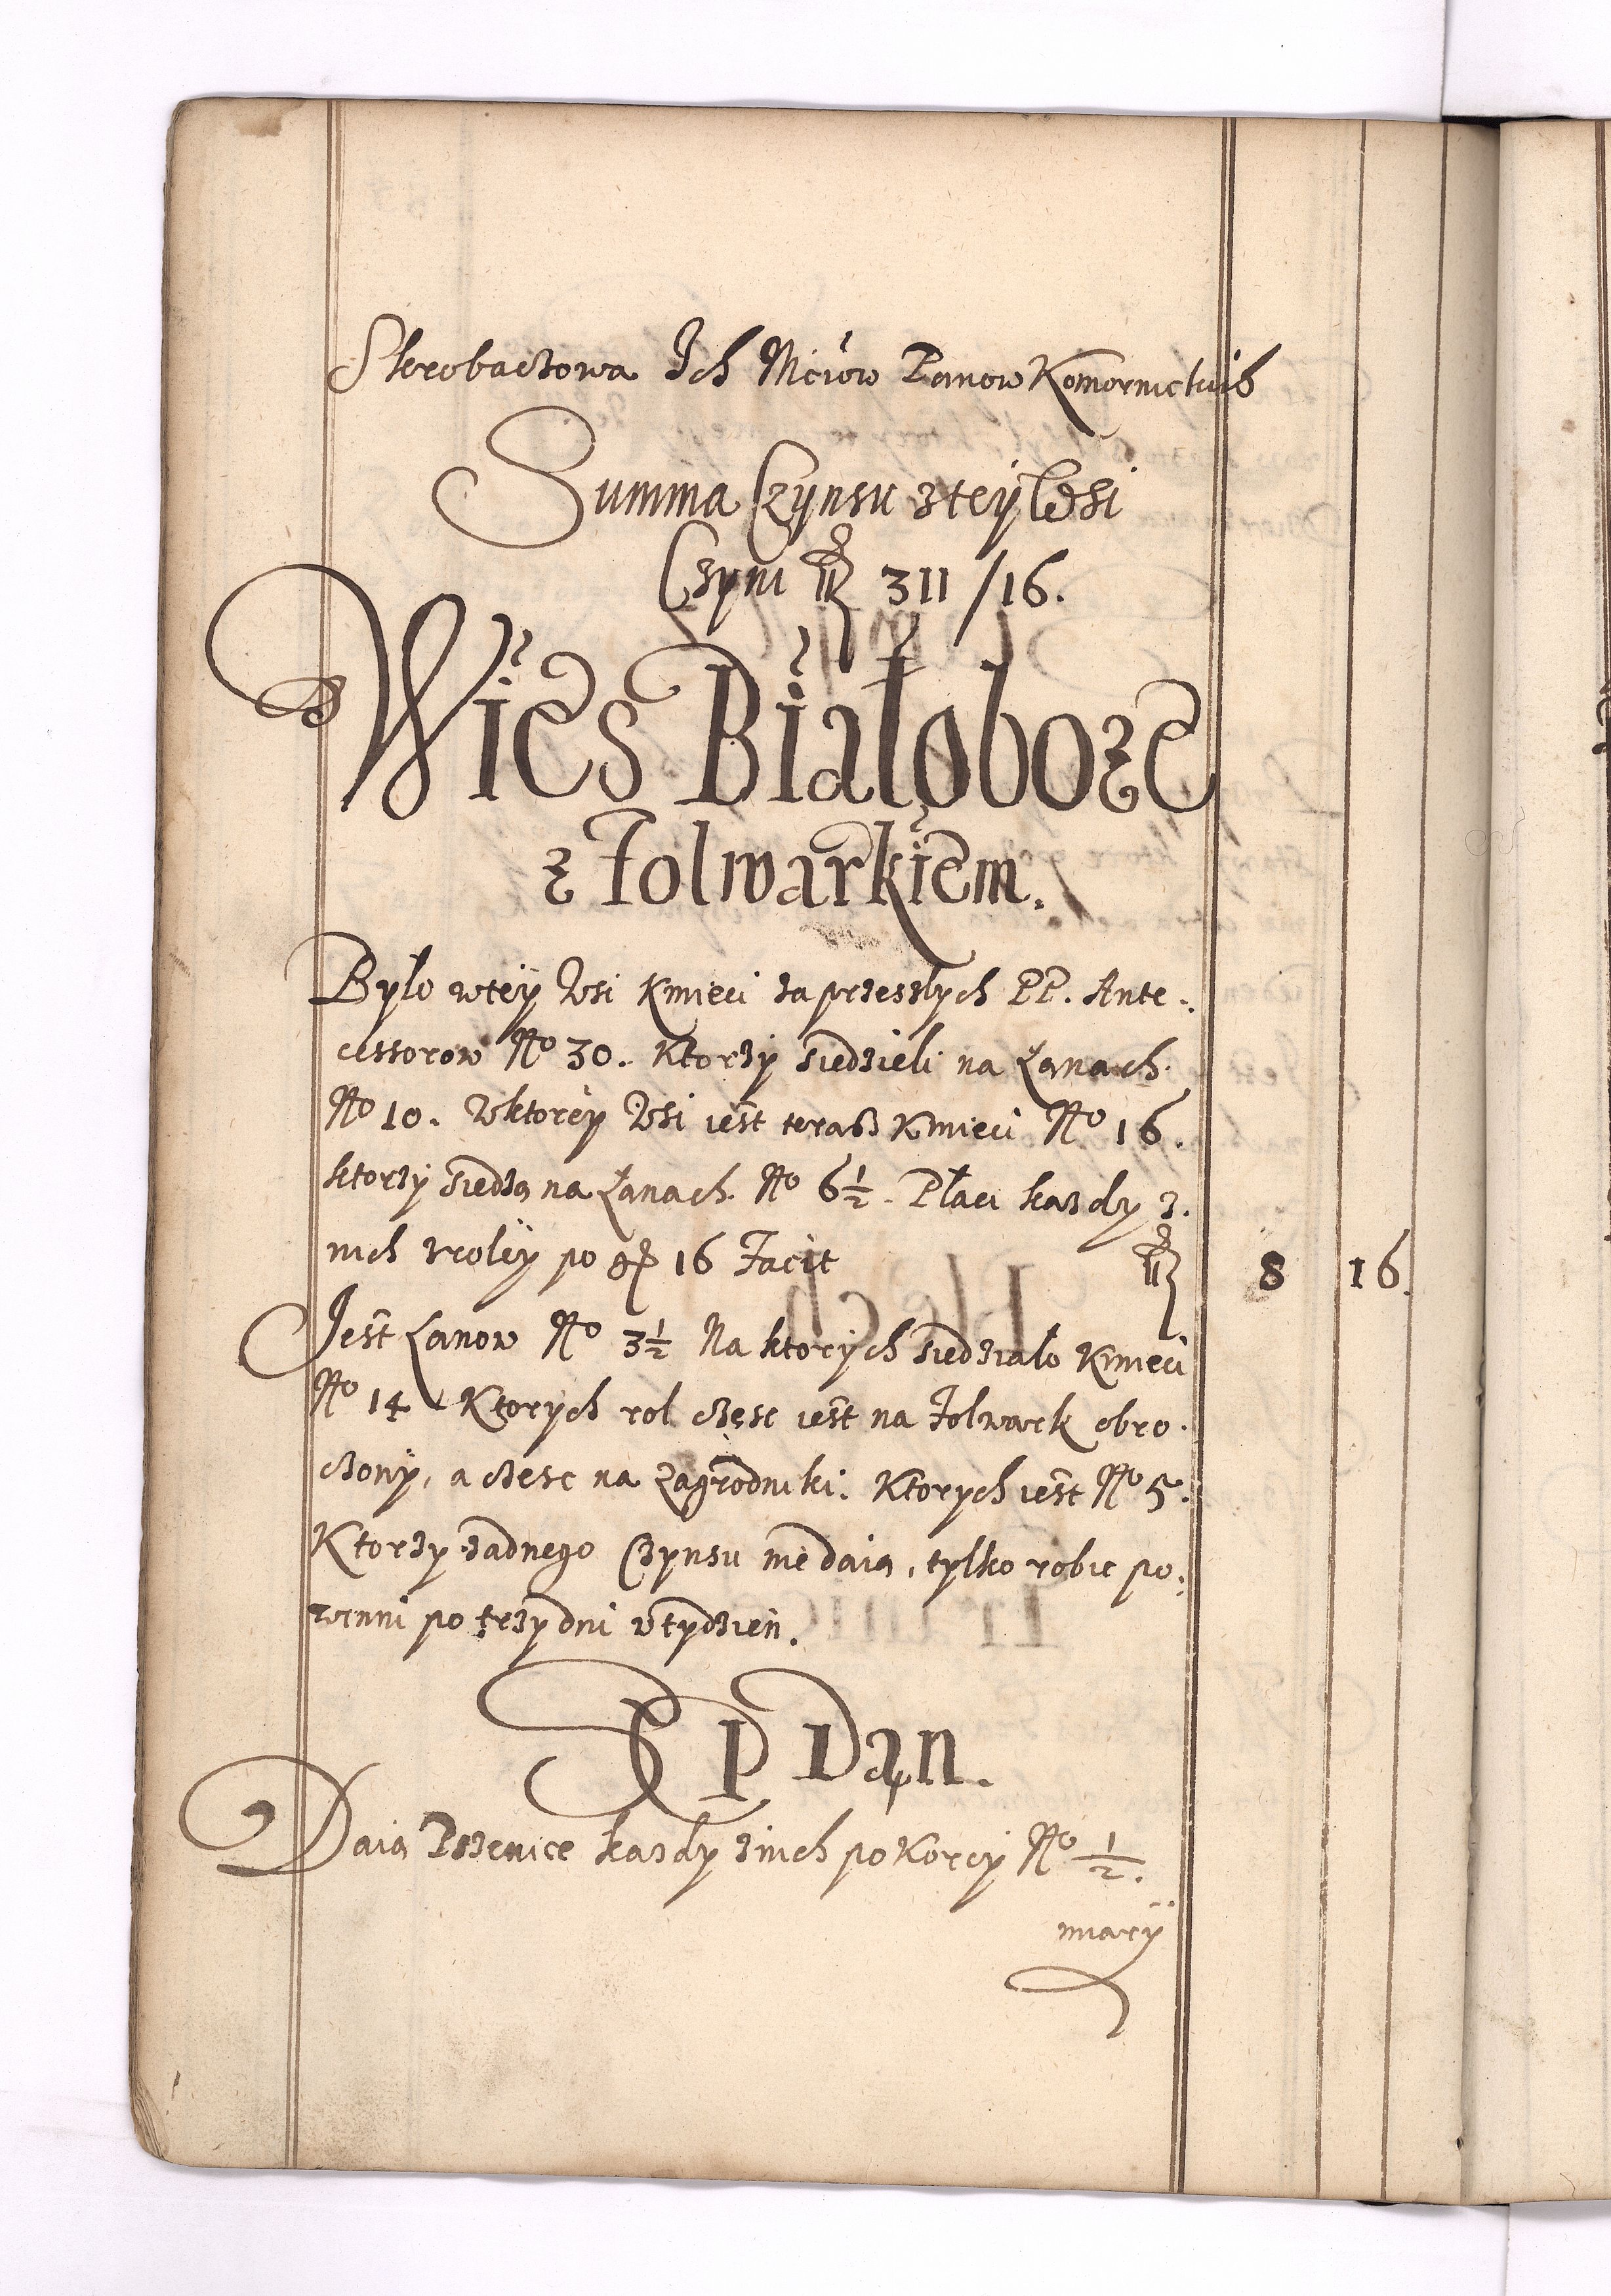 Skrobaczowa Ich Mciow Panow Komornickich
Summa Czynsu z tey Wsi
Czyni fl 311 /16.
Wies Białoboze
z Folwarkiem.
Bylo wtey Wsi Kmieci za przeszlych PP. Ante-
cessorow No 30. Ktorzy siedzieli na Łanach
No 10. Wktorey Wsi iest teraz Kmieci No 16.
ktorzy siedzą na Łanach. No 6½. Płaci kazdy z
nich z roley po gr 16 Facit fl 8 16.
Jest Łanow No 3½ Na ktorych siedzialo Kmieci
No 14 Ktorych rol częsc iest na Folwark obro-
czony, a czesc na Zagrodniki. Ktorych iest No 5.
Ktorzy zadnego Czynsu nie daią, tylko robic po-
winni po trzy dni w tydzien.
SEP Dąn.
Daią Pszenice kazdy z nich po Korcy No ½.
miary